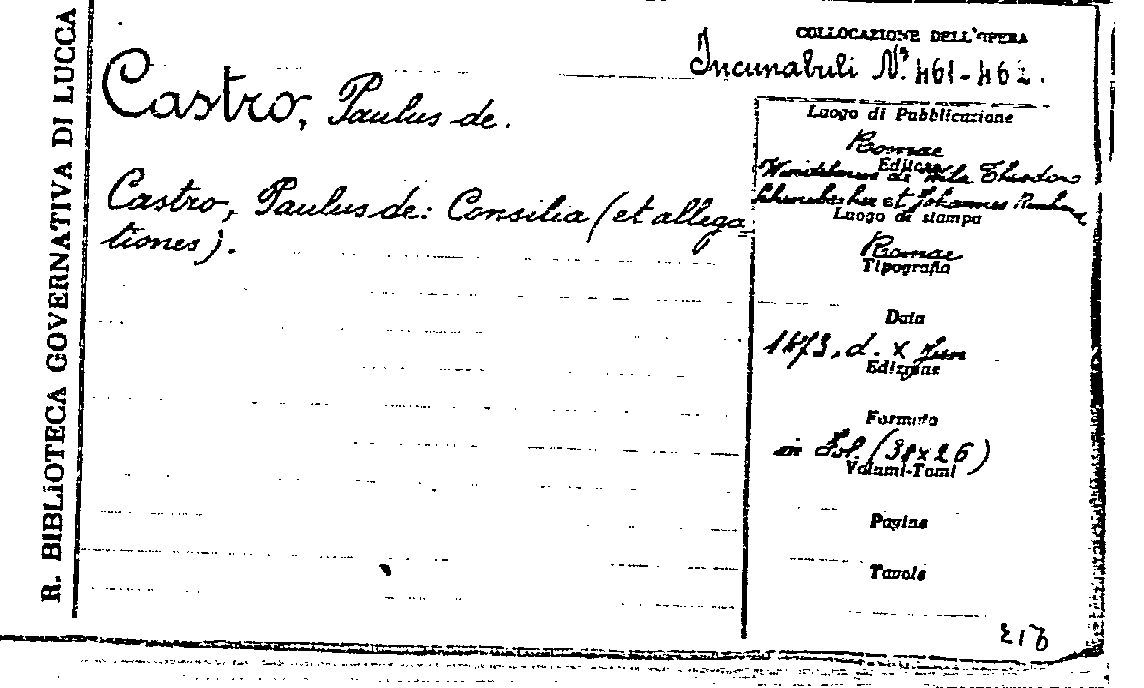 R. BIBLIOTECA GOVERNATIVA DI LUCCA
COLLOCAZIONE DELL'OPERA
Incunabuli N.i 461-462.
Castro, Paulus de.
Castro, Paulus de: Consilia (et allega=
tiones).
Luogo di Pubblicazione
Romae
Editore
de Wila Theodoro
et Johannes
Luogo di stampa
Romae
Tipografia
Data
1473, d. X Jun
Edizione
Formato
in Fol. (38x26)
Volumi-Tomi
Pagine
Tavole